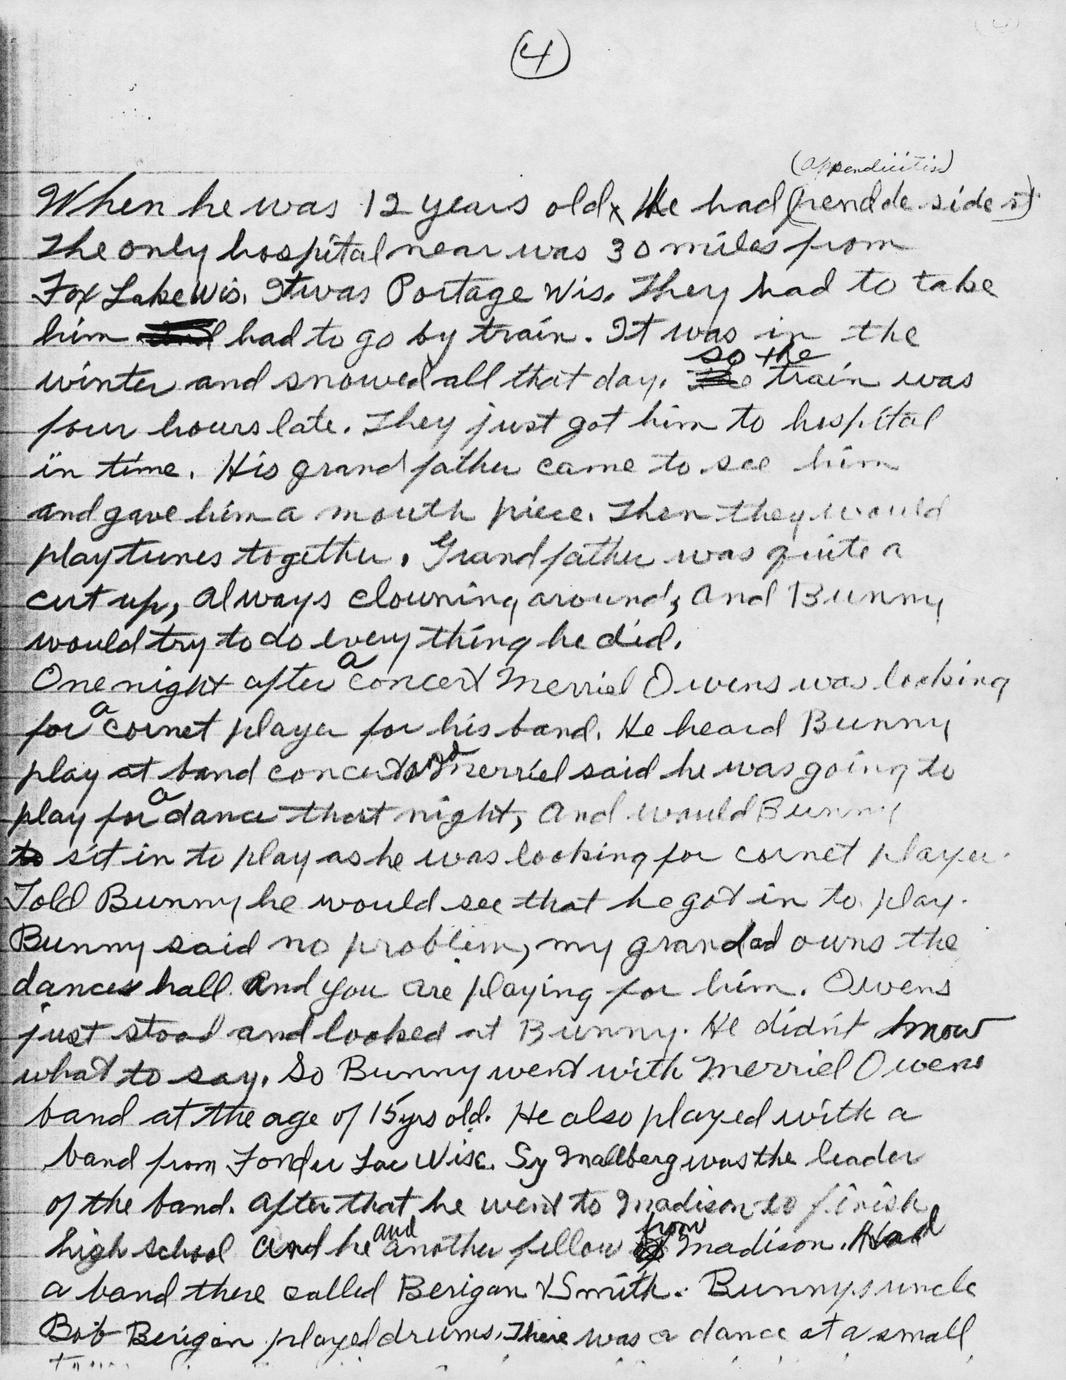 (4)
(appendicitis)
When he was 12 years old, He had (pendde side it)
The only hospital near was 30 miles from
Fox Lake Wis. It was Portage Wis. They had to take
him had to go by train. It was in the
so the
winter and snowed all that day. train was
four hours late. They just got him to hospital
in time. His grandfather came to see him
and gave him a mouth piece. Then they would
play tunes together. Grandfather was quite a
cut up, always clowning around, and Bunny
would try to do every thing he did.
One night after a concert Merriel Owens was looking
for a cornet player for his band. He heard Bunny
play at band concerts and Merriel said he was going to
play for a dance that night, and would Bunny
to sit in to play as he was looking for cornet player.
Told Bunny he would see that he got in to play.
Bunny said no problem, my grandad owns the
dance hall and you are playing for him. Owens
just stood and looked at Bunny. He didn't know
what to say. So Bunny went with Merriel Owens
band at the age of 15 yrs old. He also played with a
band from Fondu Lac Wisc. Sy Mallberg was the leader
of the band. After that he went to Madison to finish
high school and he and another fellow from Madison. Had
a band there called Berigan & Smith. Bunnys uncle
Bob Berigan played drums. There was a dance at a small